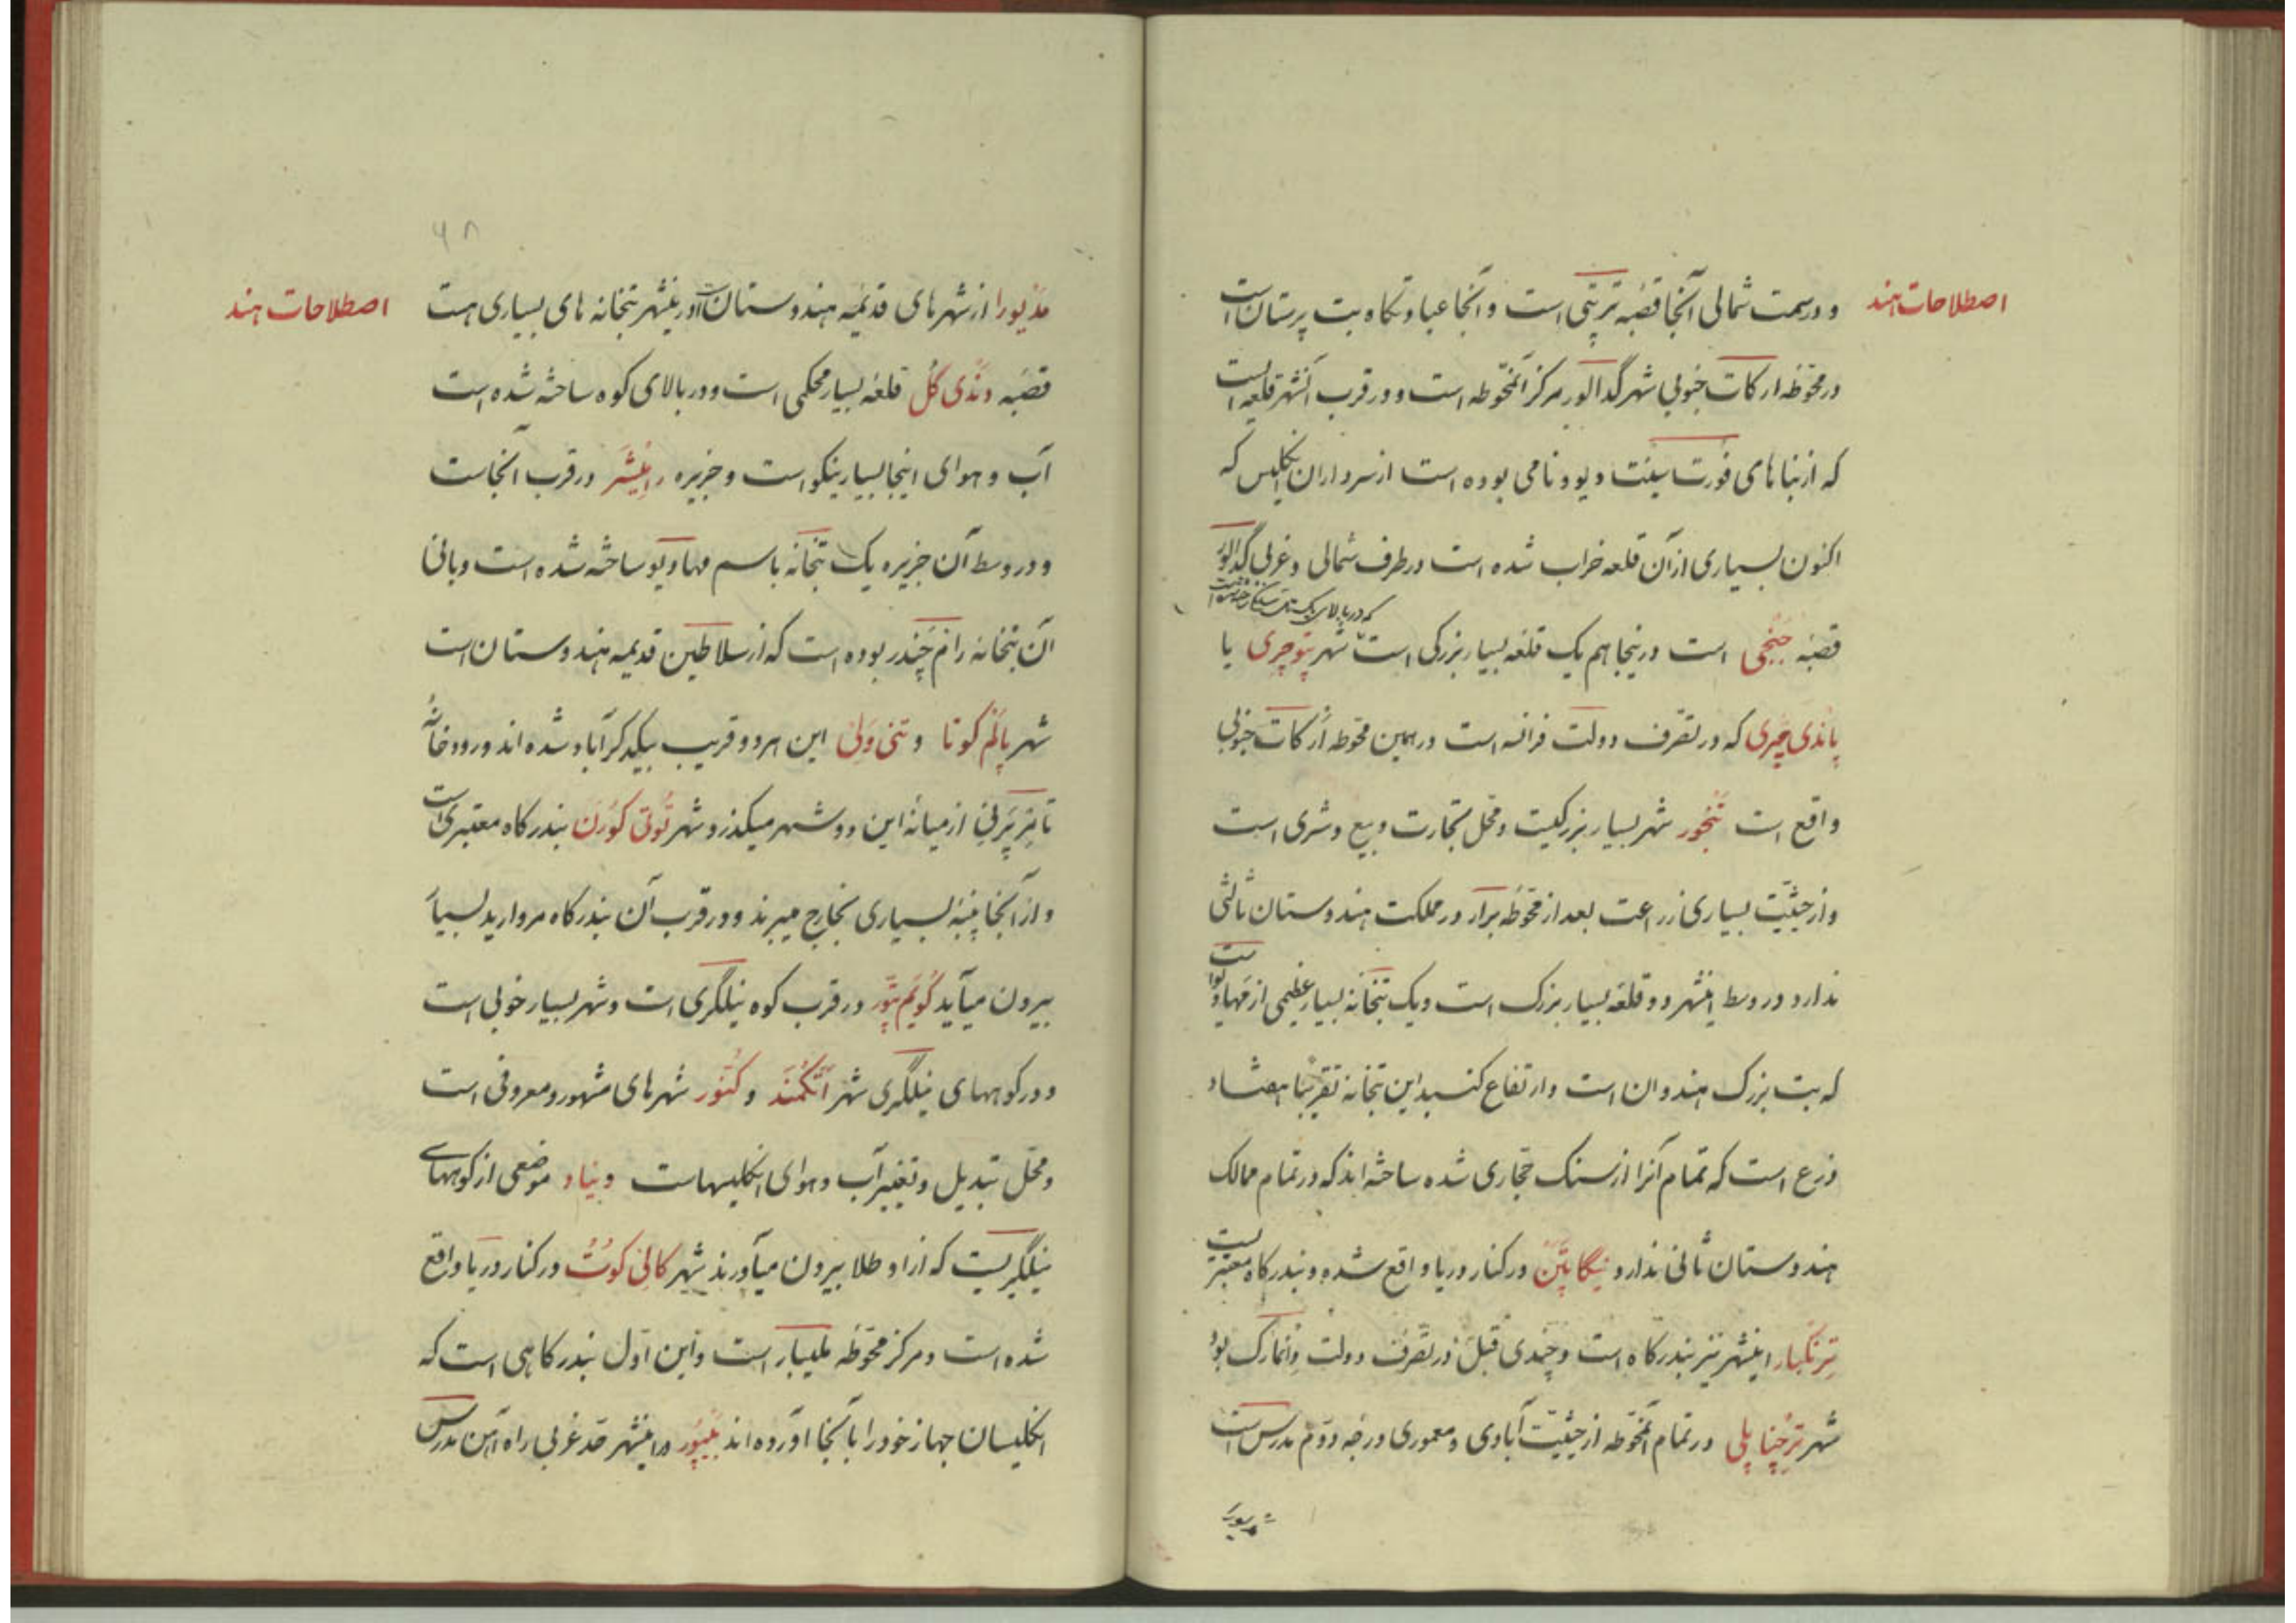 اصطلاحات هند
و در سمت شمالی آنجا قصبه ترپتی است و آنجا عبادتگاه بت پرستان است
در محوّطه ارکات جنوبی شهر گدالور مرکز آنمحوّطه است و در قرب آنشهر قلعه ایست
که از بناهای فورت سینت دیوو نامی بوده است از سرداران انگلیس که
اکنون بسیاری از آن قلعه خراب شده است در طرف شمالی و غربی گدالور
که در بالای
قصبه جنجی است در اینجا هم یک قلعه بسیار بزرگی است شهر پوتچری یا
پاندی چری که در تصرّف دولت فرانسه است در همین محوّطه ارکات جنوبی
واقع است تنجور شهر بسیار بزرگیست و محل تجارت و بیع و شری است
و از حیثیّت بسیاری زراعت بعد از محوّطه برار در مملکت هندوستان ثالثی
ندارد در وسط اینشهر دو قلعه بسیار بزرگ است و یک بتخانه بسیار عظیمی از مهادیو است
که بت بزرگ هندوان است و ارتفاع گنبد این بتخانه تقریبًا هفتاد
ذرع است که تمام آنرا از سنگ حجّاری شده ساخته اند که در تمام ممالک
هندوستان ثانی ندارد نیگاپتن در کنار دریا واقع شده و بندرگاه معتبریست
ترنکبار اینشهر نیز بندرگاه است و چندی قبل در تصرّف دولت دانمارک بود
شهر ترچناپلی در تمام آنمحوّطه از حیثیّت آبادی و معموری درجه دوّم مدرس است
مدیورا
۶۸
اصطلاحات هند
مدیورا از شهرهای قدیمه هندوستان است در اینشهر بتخانه های بسیاری هست
قصبه دندی گل قلعه بسیار محکمی است و در بالای کوه ساخته شده است
آب و هوای اینجا بسیار نیکو است و جزیره رامیشر در قرب آنجاست
و در وسط آن جزیره یک بتخانه باسم مهادیو ساخته شده است و بانی
آن بتخانه رام چندر بوده است که از سلاطین قدیمه هندوستان است
شهر پالم کوتا و تنی ولی این هر دو قریب بیکدیگر آباد شده اند و رودخانهٔ
تامبرپرنی از میانهٔ این دو شهر میگذرد شهر توتی کورن بندرگاه معتبری است
و از آنجا پنبه بسیاری بخارج میبرند و در قرب آن بندرگاه مروارید بسیار
بیرون میآید کویم پتور در قرب کوه نیلگری است و شهر بسیار خوبی است
و در کوههای نیلگری شهر اتکمند و کنور شهرهای مشهور و معروفی است
و محل تبدیل و تغییر آب و هوای انگلیسهاست وینیاد موضعی از کوههای
نیلگریست که از او طلا بیرون میآورند شهر کالی کوت در کنار دریا واقع
شده است و مرکز محوّطه ملیبار است و این اوّل بندرگاهی است که
انگلیسان جهاز خود را بآنجا آورده اند بیپور اینشهر حد غربی راه آهن مدرس